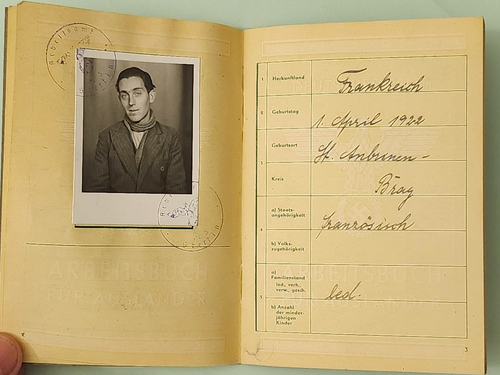 Arbeitsamt
ARBEITSBUCH
AUSLÄNDER
1 Herkunftland Frankreich
2 Geburtstag 1. April 1922
Geburtsort
3 St.
Kreis Bray
a) Staats-
angehörigkeit französisch
4
b) Volks-
zugehörigkeit
a)
Familienstand
led., verh.,
verw., gesch. led.
5
b) Anzahl
der minder-
jährigen
Kinder
3